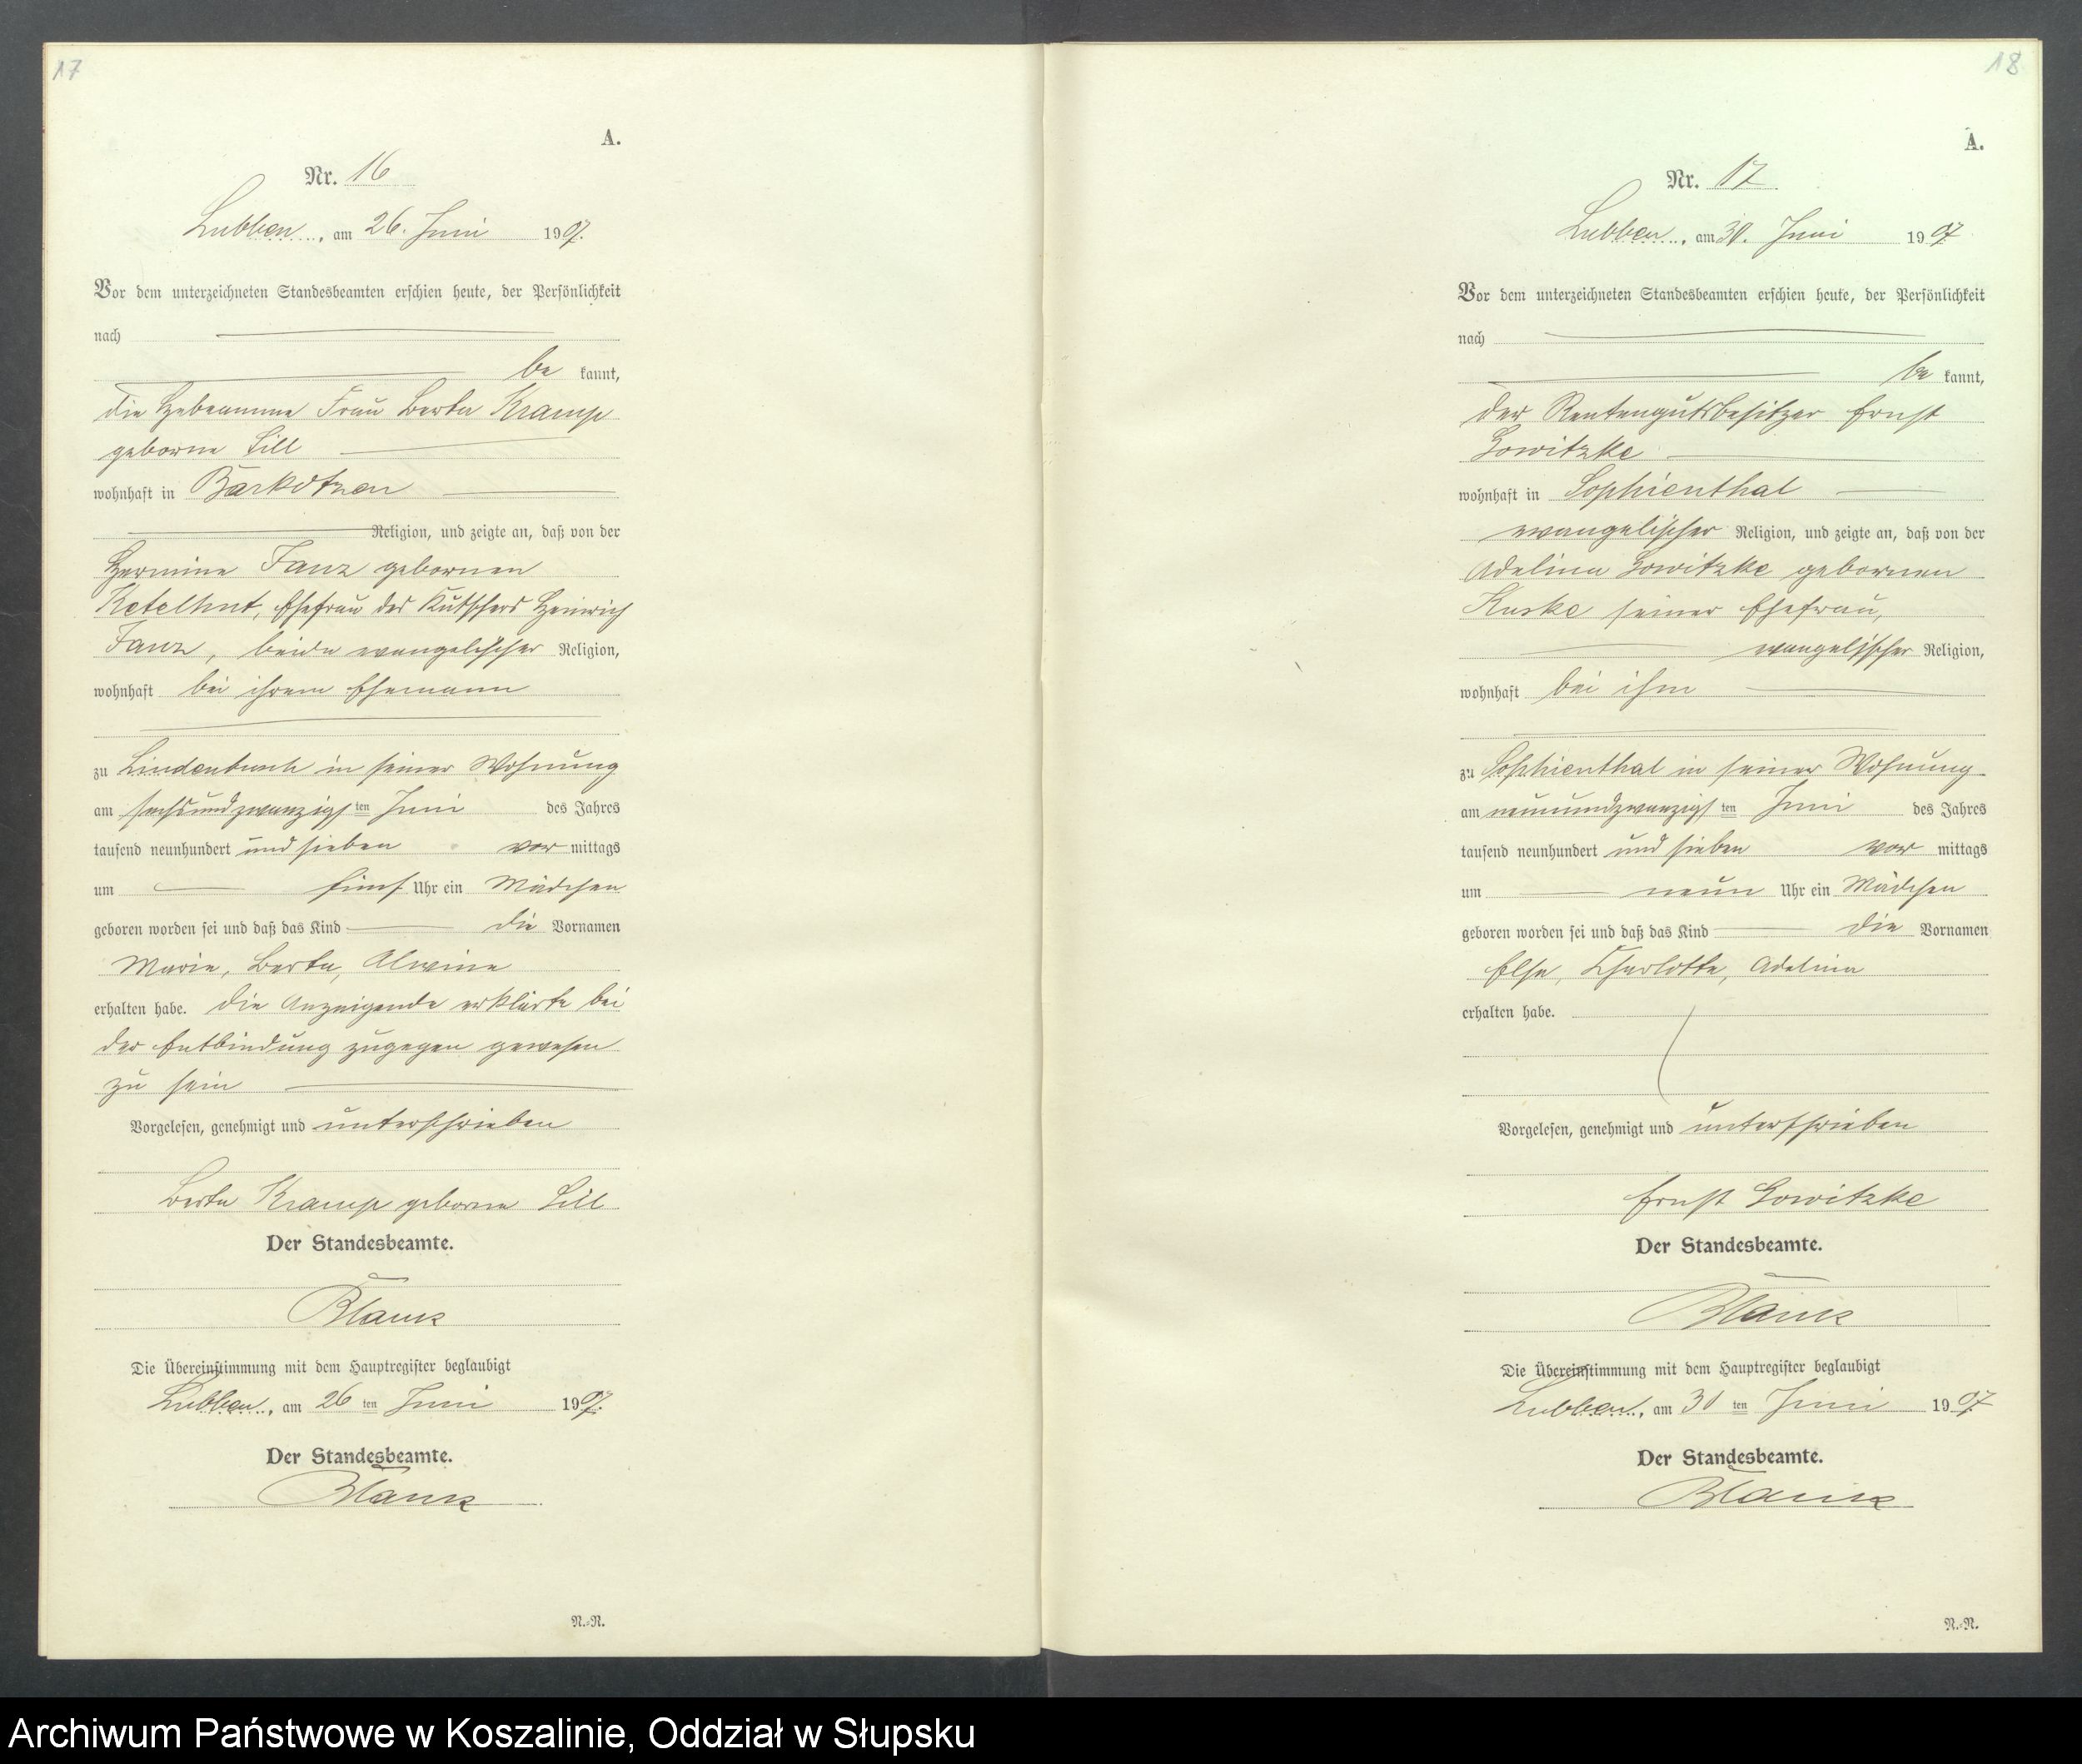 17
A.
Nr. 16
Lubben, am 26. Juni 1907.
Vor dem unterzeichneten Standesbeamten erschien heute, der Persönlichkeit
nach
be kannt,
die Hebeamme Frau Berta Kramp
geborne Sill
wohnhaft in Barkotzen
Religion, und zeigte an, daß von der
Hermine Janz gebornen
Ketelhut, Ehefrau des Kutschers Heinrich
Janz, beide evangelischer Religion,
wohnhaft bei ihrem Ehemann
zu Lindenbusch in seiner Wohnung
am sechsundzwanzigsten Juni des Jahres
tausend neunhundert und sieben vor mittags
um fünf Uhr ein Mädchen
geboren worden sei und daß das Kind die Vornamen
Marie, Berta, Alwine
erhalten habe. Die Anzeigende erklärte bei
der Entbindung zugegen gewesen
zu sein
Vorgelesen, genehmigt und unterschrieben
Berta Kramp geborne Sill
Der Standesbeamte.
Die Übereinstimmung mit dem Hauptregister beglaubigt
Lubben, am 26 ten Juni 1907.
Der Standesbeamte.
N.=N.
18
A.
Nr. 17
Lubben, am 30. Juni 1907
Vor dem unterzeichneten Standesbeamten erschien heute, der Persönlichkeit
nach
be kannt,
der Rentengutsbesitzer Ernst
Gowitzke
wohnhaft in Sophienthal
evangelischer Religion, und zeigte an, daß von der
Adeline Gowitzke gebornen
Kuske seiner Ehefrau,
evangelischer Religion,
wohnhaft bei ihm
zu Sophienthal in seiner Wohnung
am neunundzwanzigsten Juni des Jahres
tausend neunhundert und sieben vor mittags
um neun Uhr ein Mädchen
geboren worden sei und daß das Kind die Vornamen
Else, Charlotte, Adeline
erhalten habe.
Vorgelesen, genehmigt und unterschrieben
Ernst Gowitzke
Der Standesbeamte.
Die Übereinstimmung mit dem Hauptregister beglaubigt
Lubben, am 30 ten Juni 1907
Der Standesbeamte.
N.=N.
Archiwum Państwowe w Koszalinie, Oddział w Słupsku